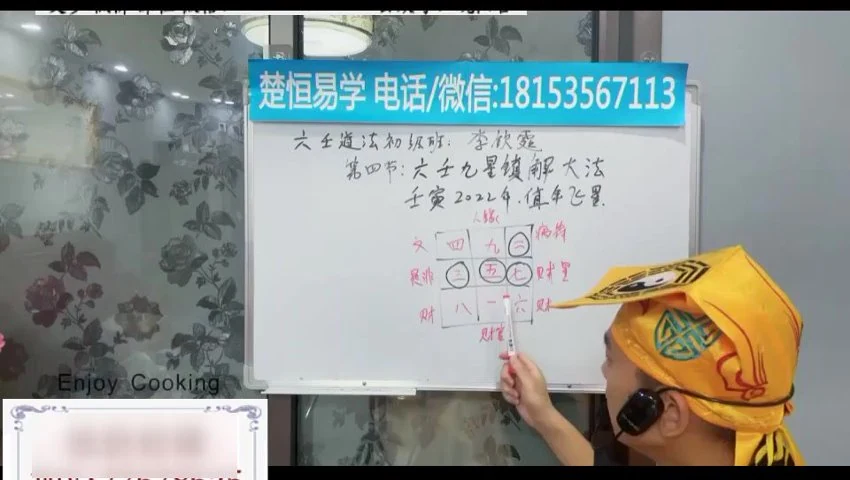 楚恒易学 电话/微信:18153567113
六壬道法初级班: 李欣霓
第四节:六壬九星镇解大法
壬寅2022年.值年飞星
人缘
文 四 九 二 病符
是非 三 五 七 财星
财 八 一 六 财
财星
Enjoy Cooking